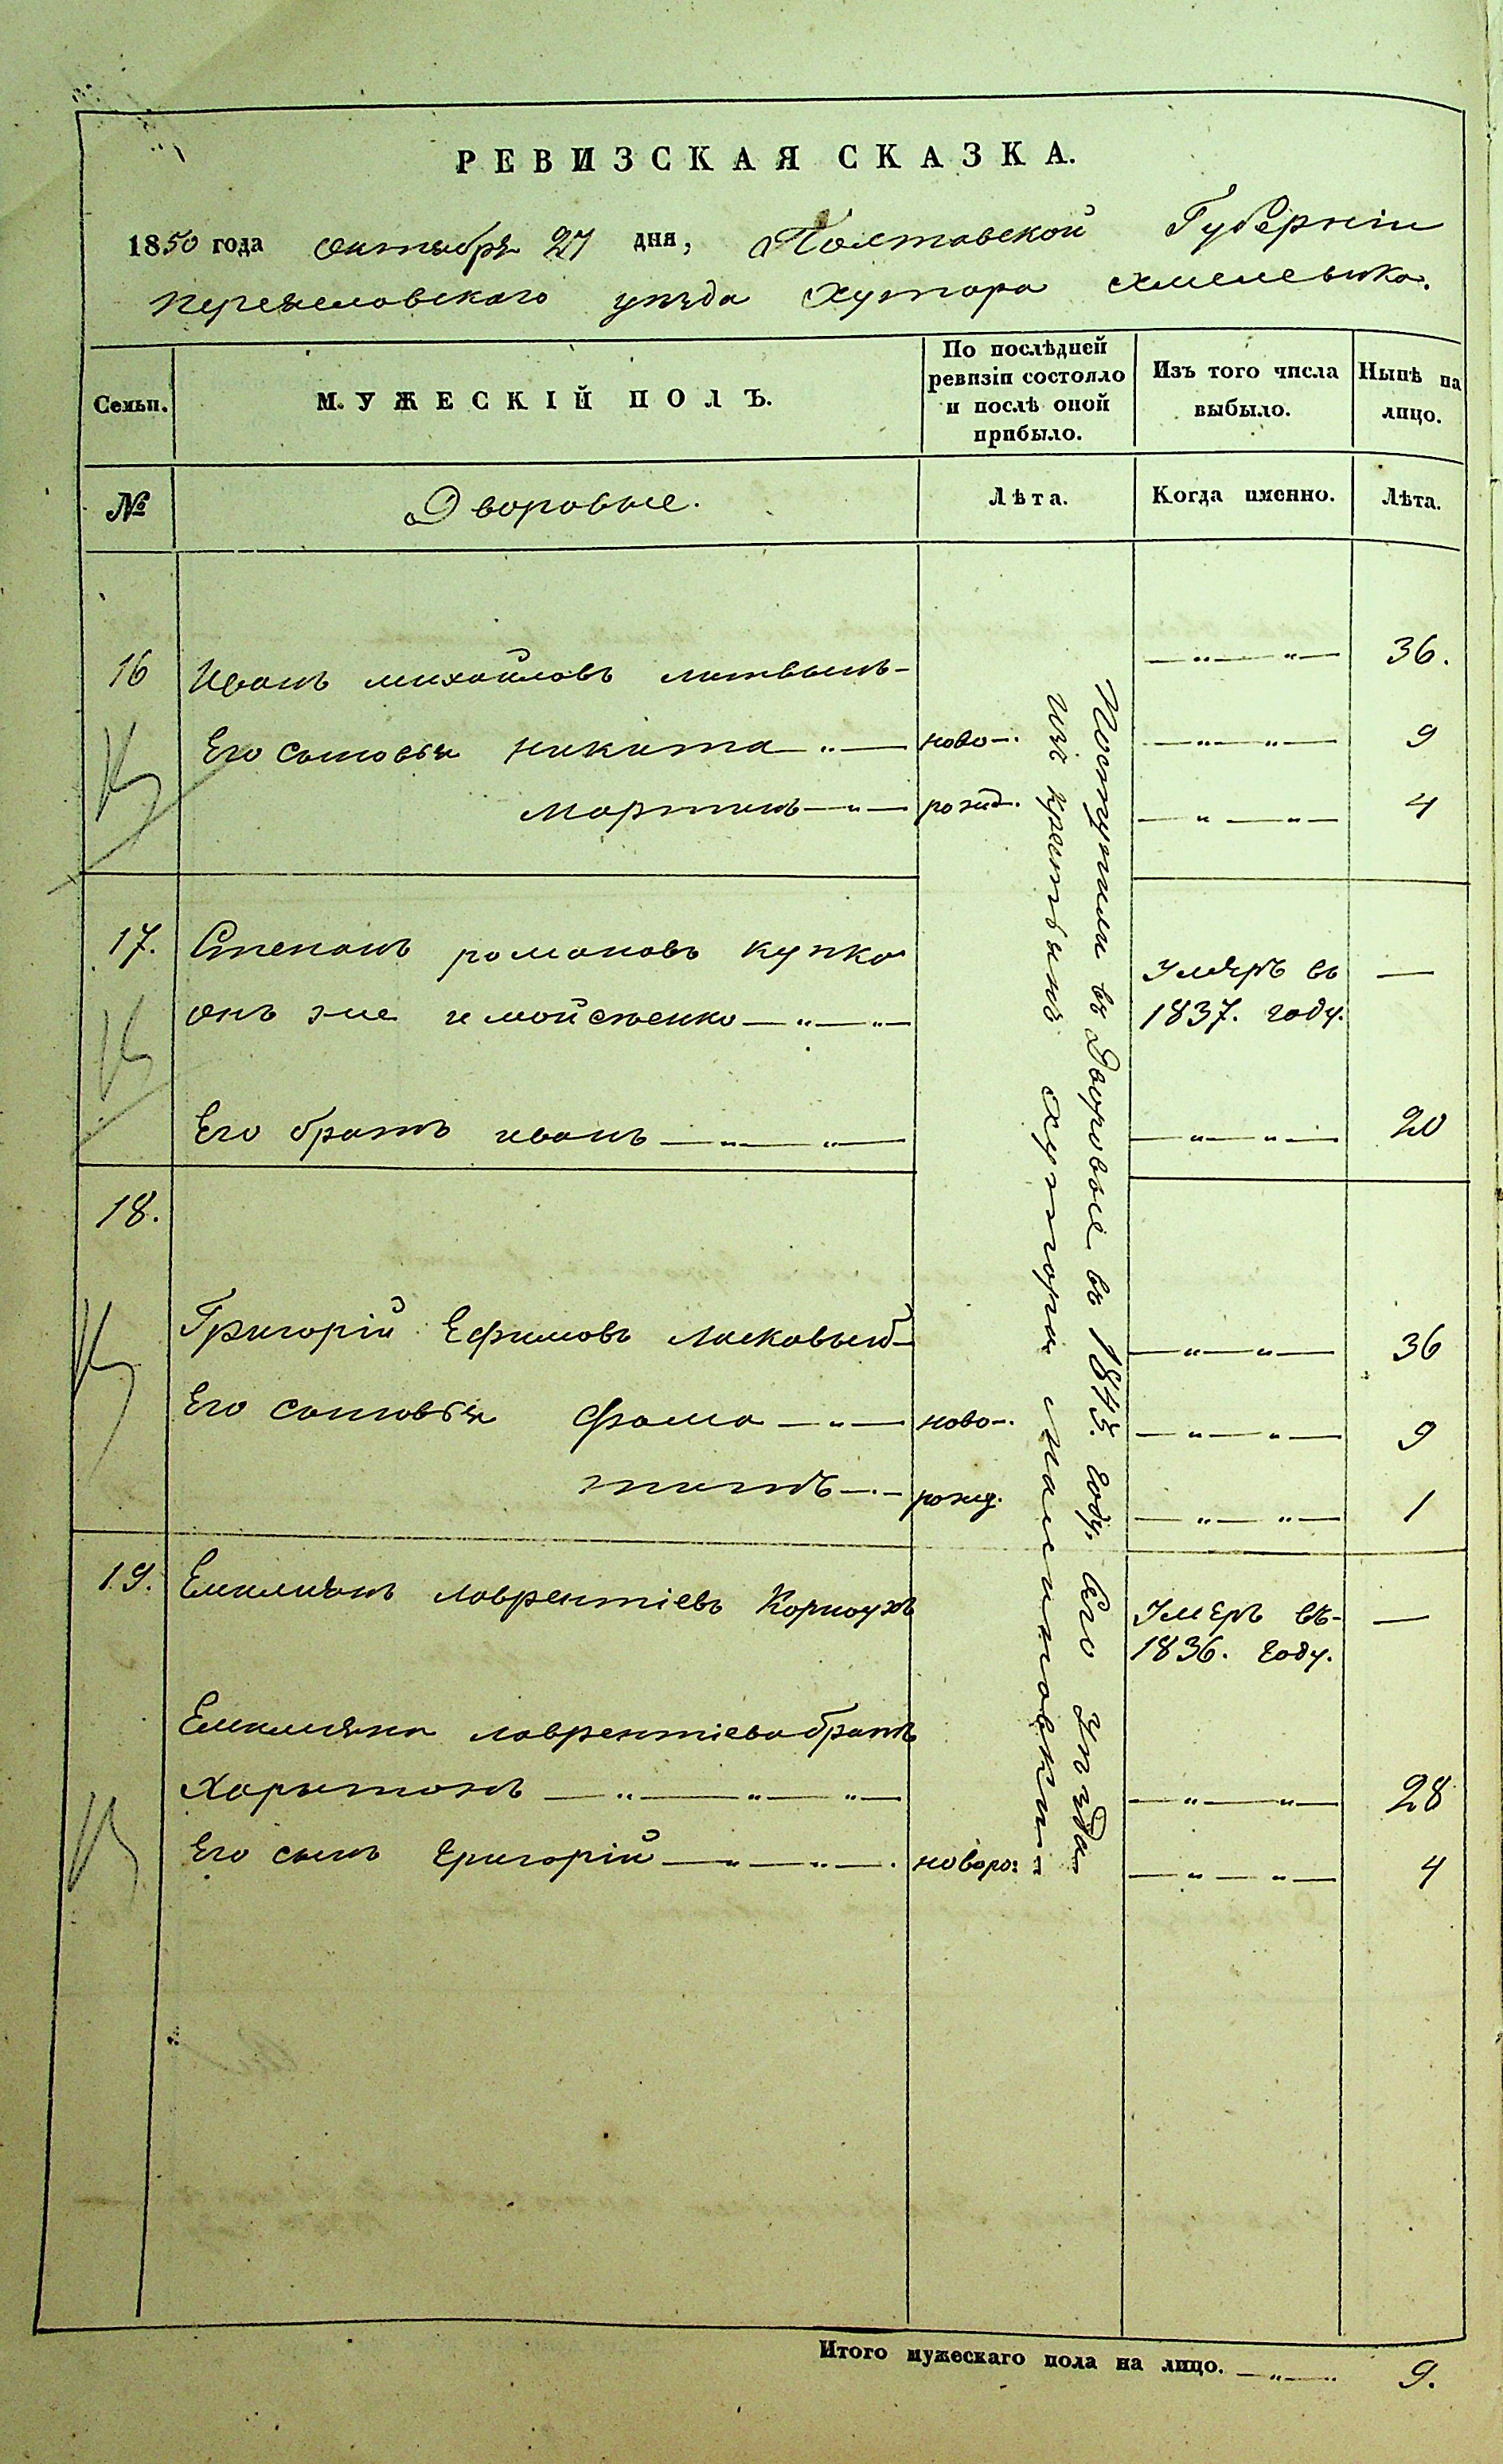 РЕВИЗСКАЯ СКАЗКА.
1850 года октября 27 дня, Полтавской Губерніи
переяславского уезда Хутора хмелевика.
Семьи.
МУЖЕСКІЙ ПОЛЪ.
По послѣдней
ревизіи состояло
и послѣ оной
прибыло.
Изъ того числа
выбыло.
Нынѣ на
лицо.
№
Дворовые.
Лѣта.
Когда именно.
Лѣта.
16 Иванъ михайловъ литвынъ — „ — „ — 36.
Его сыновья никита — „ — ново-. — „ — „ — 9
мартинъ — „ — рожд. — „ — „ — 4
17. Степанъ романовъ купка Умеръ въ —
онъ же и мойсѣенко — „ — „ 1837. году.
Его братъ иванъ — „ — „ — — „ — „ — 20
18.
Григорій Ефимовъ Лисковый — „ — „ — 36
Его сыновья фома — „ — ново-. — „ — „ — 9
титъ — . — рожд. — „ — „ — 1
19. Емилиянъ лаврентіевъ Корноухъ Умеръ въ- —
1836. году.
Емилияна лаврентіева братъ
Харытонъ — „ — „ — „ — — „ — „ — 28
Его сынъ григорій — „ — „ — . новоро: — „ — „ — 4
Поступили въ Дворовые въ 1845. году. Сего Уезда
изъ крестьянъ хутора
Итого мужескаго пола на лицо. — „ — 9.